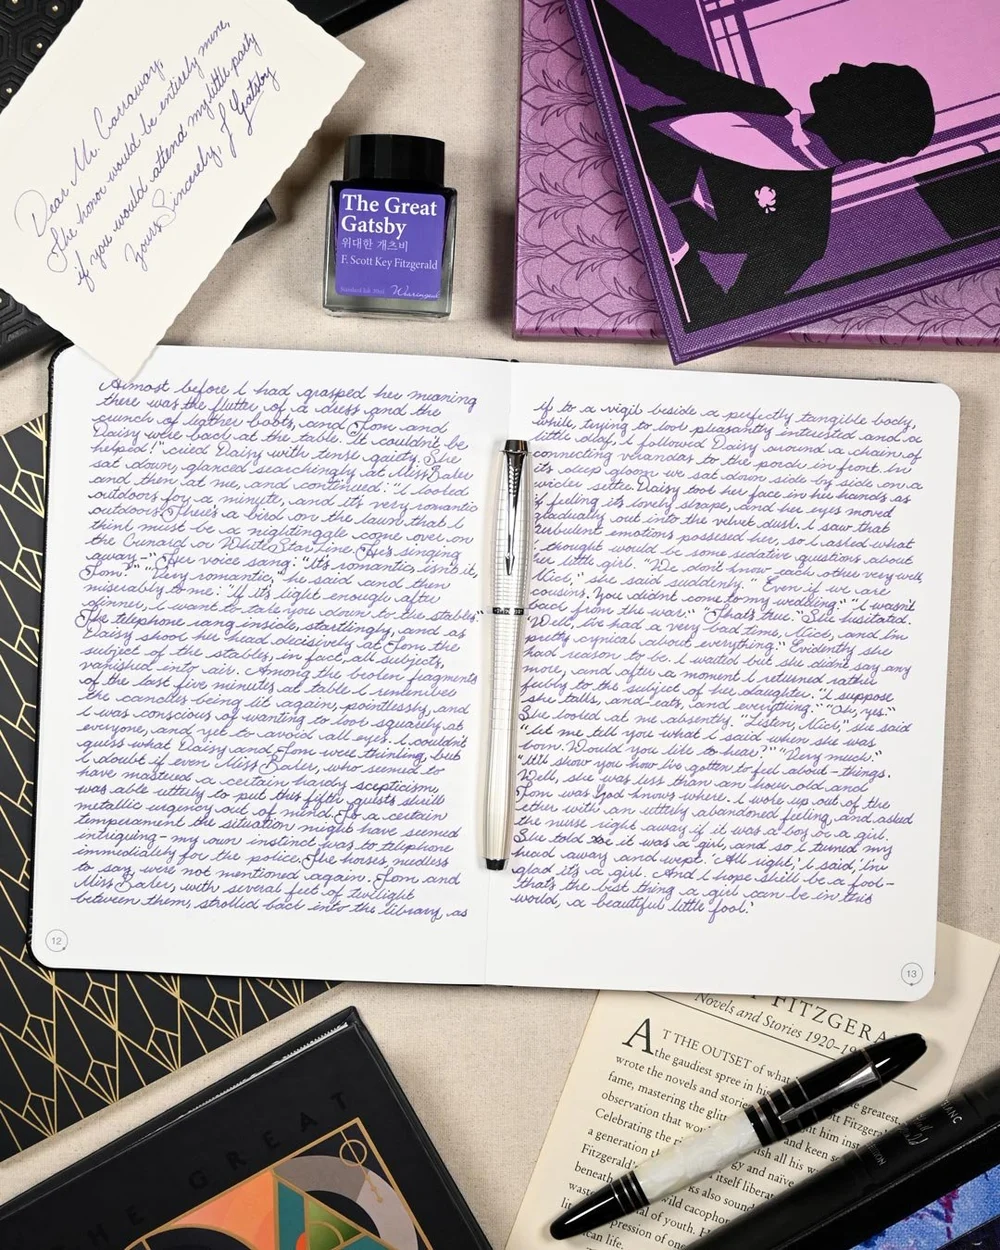 Dear Mr. Carraway,
The honor would be entirely mine,
if you would attend my little party
Yours Sincerely, J Gatsby
The Great
Gatsby
위대한 개츠비
F. Scott Key Fitzgerald
Standard Ink 30ml
Wearingeul
Almost before I had grasped her meaning
there was the flutter of a dress and the
crunch of leather boots, and Tom and
Daisy were back at the table. "It couldn't be
helped!" cried Daisy with tense gaiety. She
sat down, glanced searchingly at Miss Baker
and then at me, and continued: "I looked
outdoors for a minute, and it's very romantic
outdoors. There's a bird on the lawn that I
think must be a nightingale come over on
the Cunard or White Star Line. He's singing
away—" Her voice sang: "It's romantic, isn't it,
Tom?" "Very romantic," he said and then
miserably to me: "If it's light enough after
dinner, I want to take you down to the stables."
The telephone rang inside, startlingly, and as
Daisy shook her head decisively at Tom the
subject of the stables, in fact, all subjects,
vanished into air. Among the broken fragments
of the last five minutes at table I remember
the candles being lit again, pointlessly, and
I was conscious of wanting to look squarely at
everyone, and yet to avoid all eyes. I couldn't
guess what Daisy and Tom were thinking, but
I doubt if even Miss Baker, who seemed to
have mastered a certain hardy scepticism,
was able utterly to put this fifth guest's shrill
metallic urgency out of mind. To a certain
temperament the situation might have seemed
intriguing— my own instinct was to telephone
immediately for the police. The horses, needless
to say, were not mentioned again. Tom and
Miss Baker, with several feet of twilight
between them, strolled back into the library, as
12
if to a vigil beside a perfectly tangible body,
while, trying to look pleasantly interested and a
little deaf, I followed Daisy around a chain of
connecting verandas to the porch in front. In
its deep gloom we sat down side by side on a
wicker settee. Daisy took her face in her hands as
if feeling its lovely shape, and her eyes moved
gradually out into the velvet dusk. I saw that
turbulent emotions possessed her, so I asked what
I thought would be some sedative questions about
her little girl. "We don't know each other very well,
Nick," she said suddenly. "Even if we are
cousins. You didn't come to my wedding." "I wasn't
back from the war." "That's true." She hesitated.
"Well, I've had a very bad time, Nick, and I'm
pretty cynical about everything." Evidently she
had reason to be. I waited but she didn't say any
more, and after a moment I returned rather
feebly to the subject of her daughter. "I suppose
she talks, and—eats, and everything." "Oh, yes."
She looked at me absently. "Listen, Nick," she said
"let me tell you what I said when she was
born. Would you like to hear?" "Very much."
"It'll show you how I've gotten to feel about—things.
Well, she was less than an hour old and
Tom was God knows where. I woke up out of the
ether with an utterly abandoned feeling, and asked
the nurse right away if it was a boy or a girl.
She told me it was a girl, and so I turned my
head away and wept. 'All right,' I said, 'I'm
glad it's a girl. And I hope she'll be a fool—
that's the best thing a girl can be in this
world, a beautiful little fool.'
13
FITZGERA
Novels and Stories 1920–19
AT THE OUTSET of what
the gaudiest spree in his
wrote the novels and stories
greatest
fame, mastering the glitt
observation that
Celebrating the
a generation
Fitzgerald's
beneath
wild cacophon
of youth. F
pression of one
can life.
THE GREAT